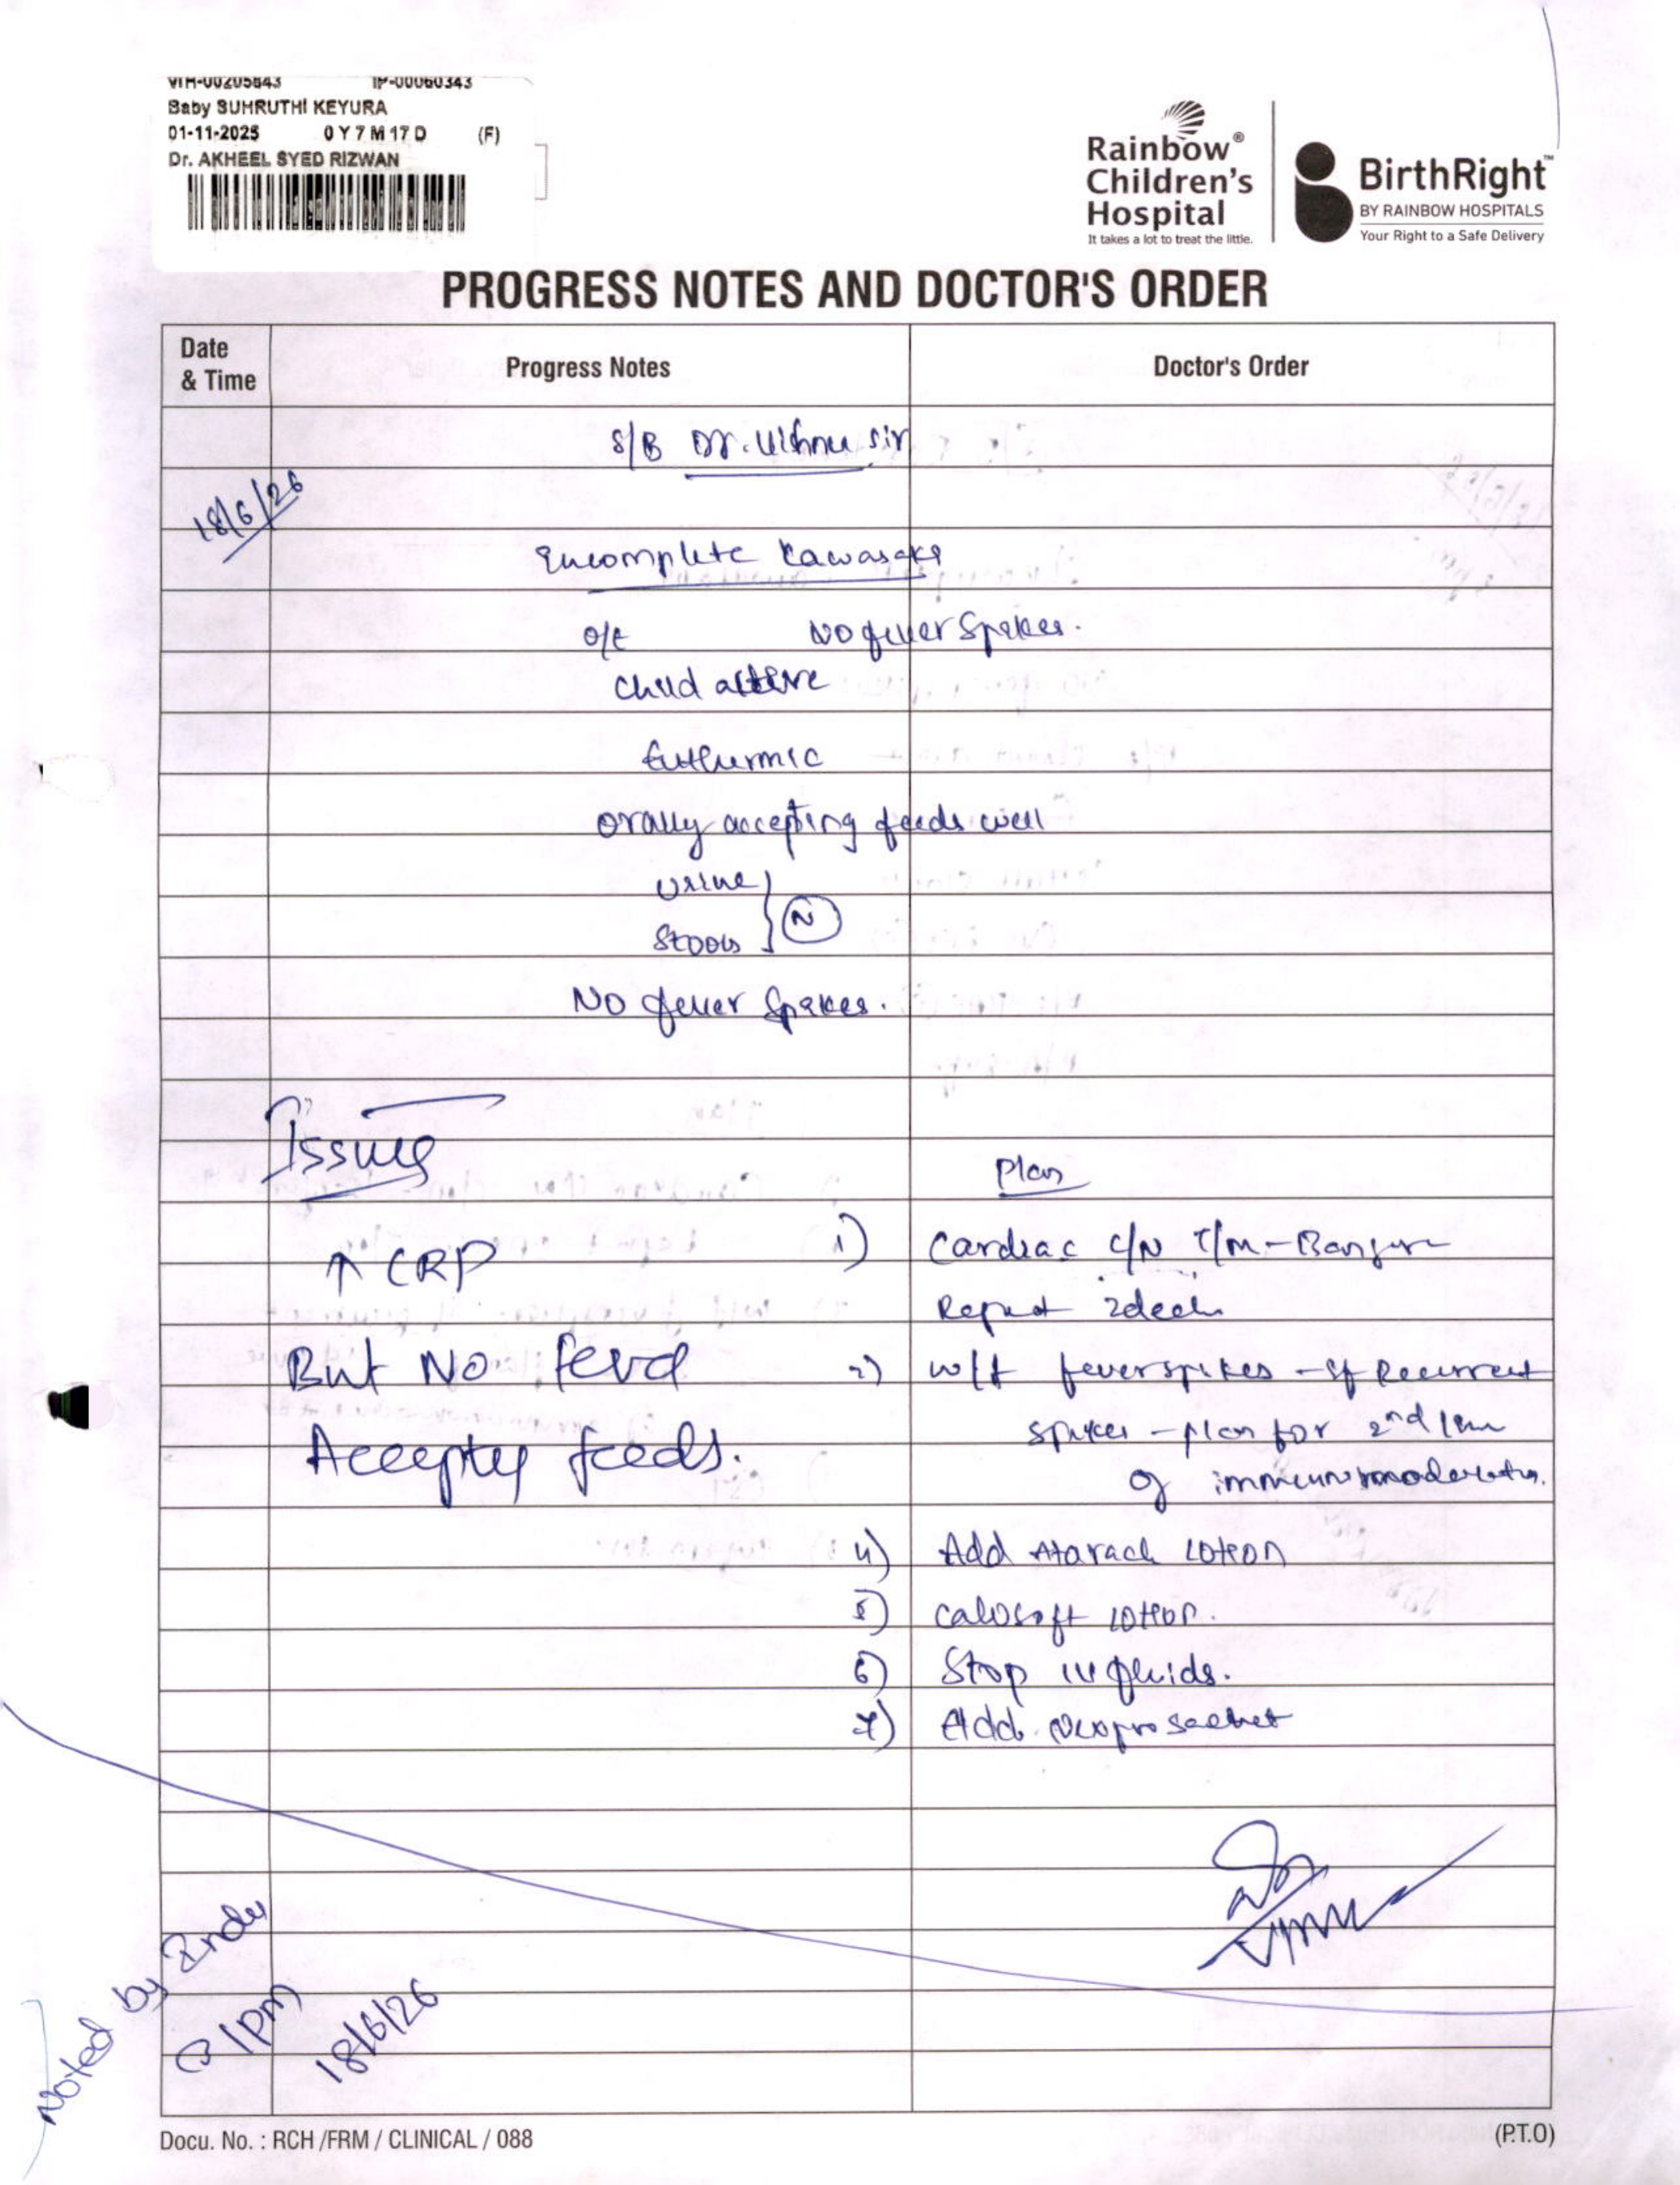 VIH-00205843 IP-00060343
Baby SUHRUTHI KEYURA
01-11-2025 0 Y 7 M 17 D (F)
Dr. AKHEEL SYED RIZWAN
Rainbow®
Children's
Hospital
It takes a lot to treat the little.
BirthRight™
BY RAINBOW HOSPITALS
Your Right to a Safe Delivery
PROGRESS NOTES AND DOCTOR'S ORDER
Date
& Time
Progress Notes
Doctor's Order
S/B Dr. Vishnu sir
18/6/26
Incomplete Kawasaki
O/E No fever Spikes.
Child active
Euthermic
Orally accepting feeds well
Urine
Stools } N
No fever Spikes.
Issues
Plan
↑ CRP
1) Cardiac
Repeat 2decho
But No
2) w/f fever spikes - If Recurrent
spikes - plan for 2nd line
Feeds.
of
4) Add Atarach Lotion
5) Calosoft lotion.
6) Stop IV fluids.
7) Add sachet
Noted by Indu
@ 1pm
18/6/26
Docu. No. : RCH /FRM / CLINICAL / 088
(P.T.O)